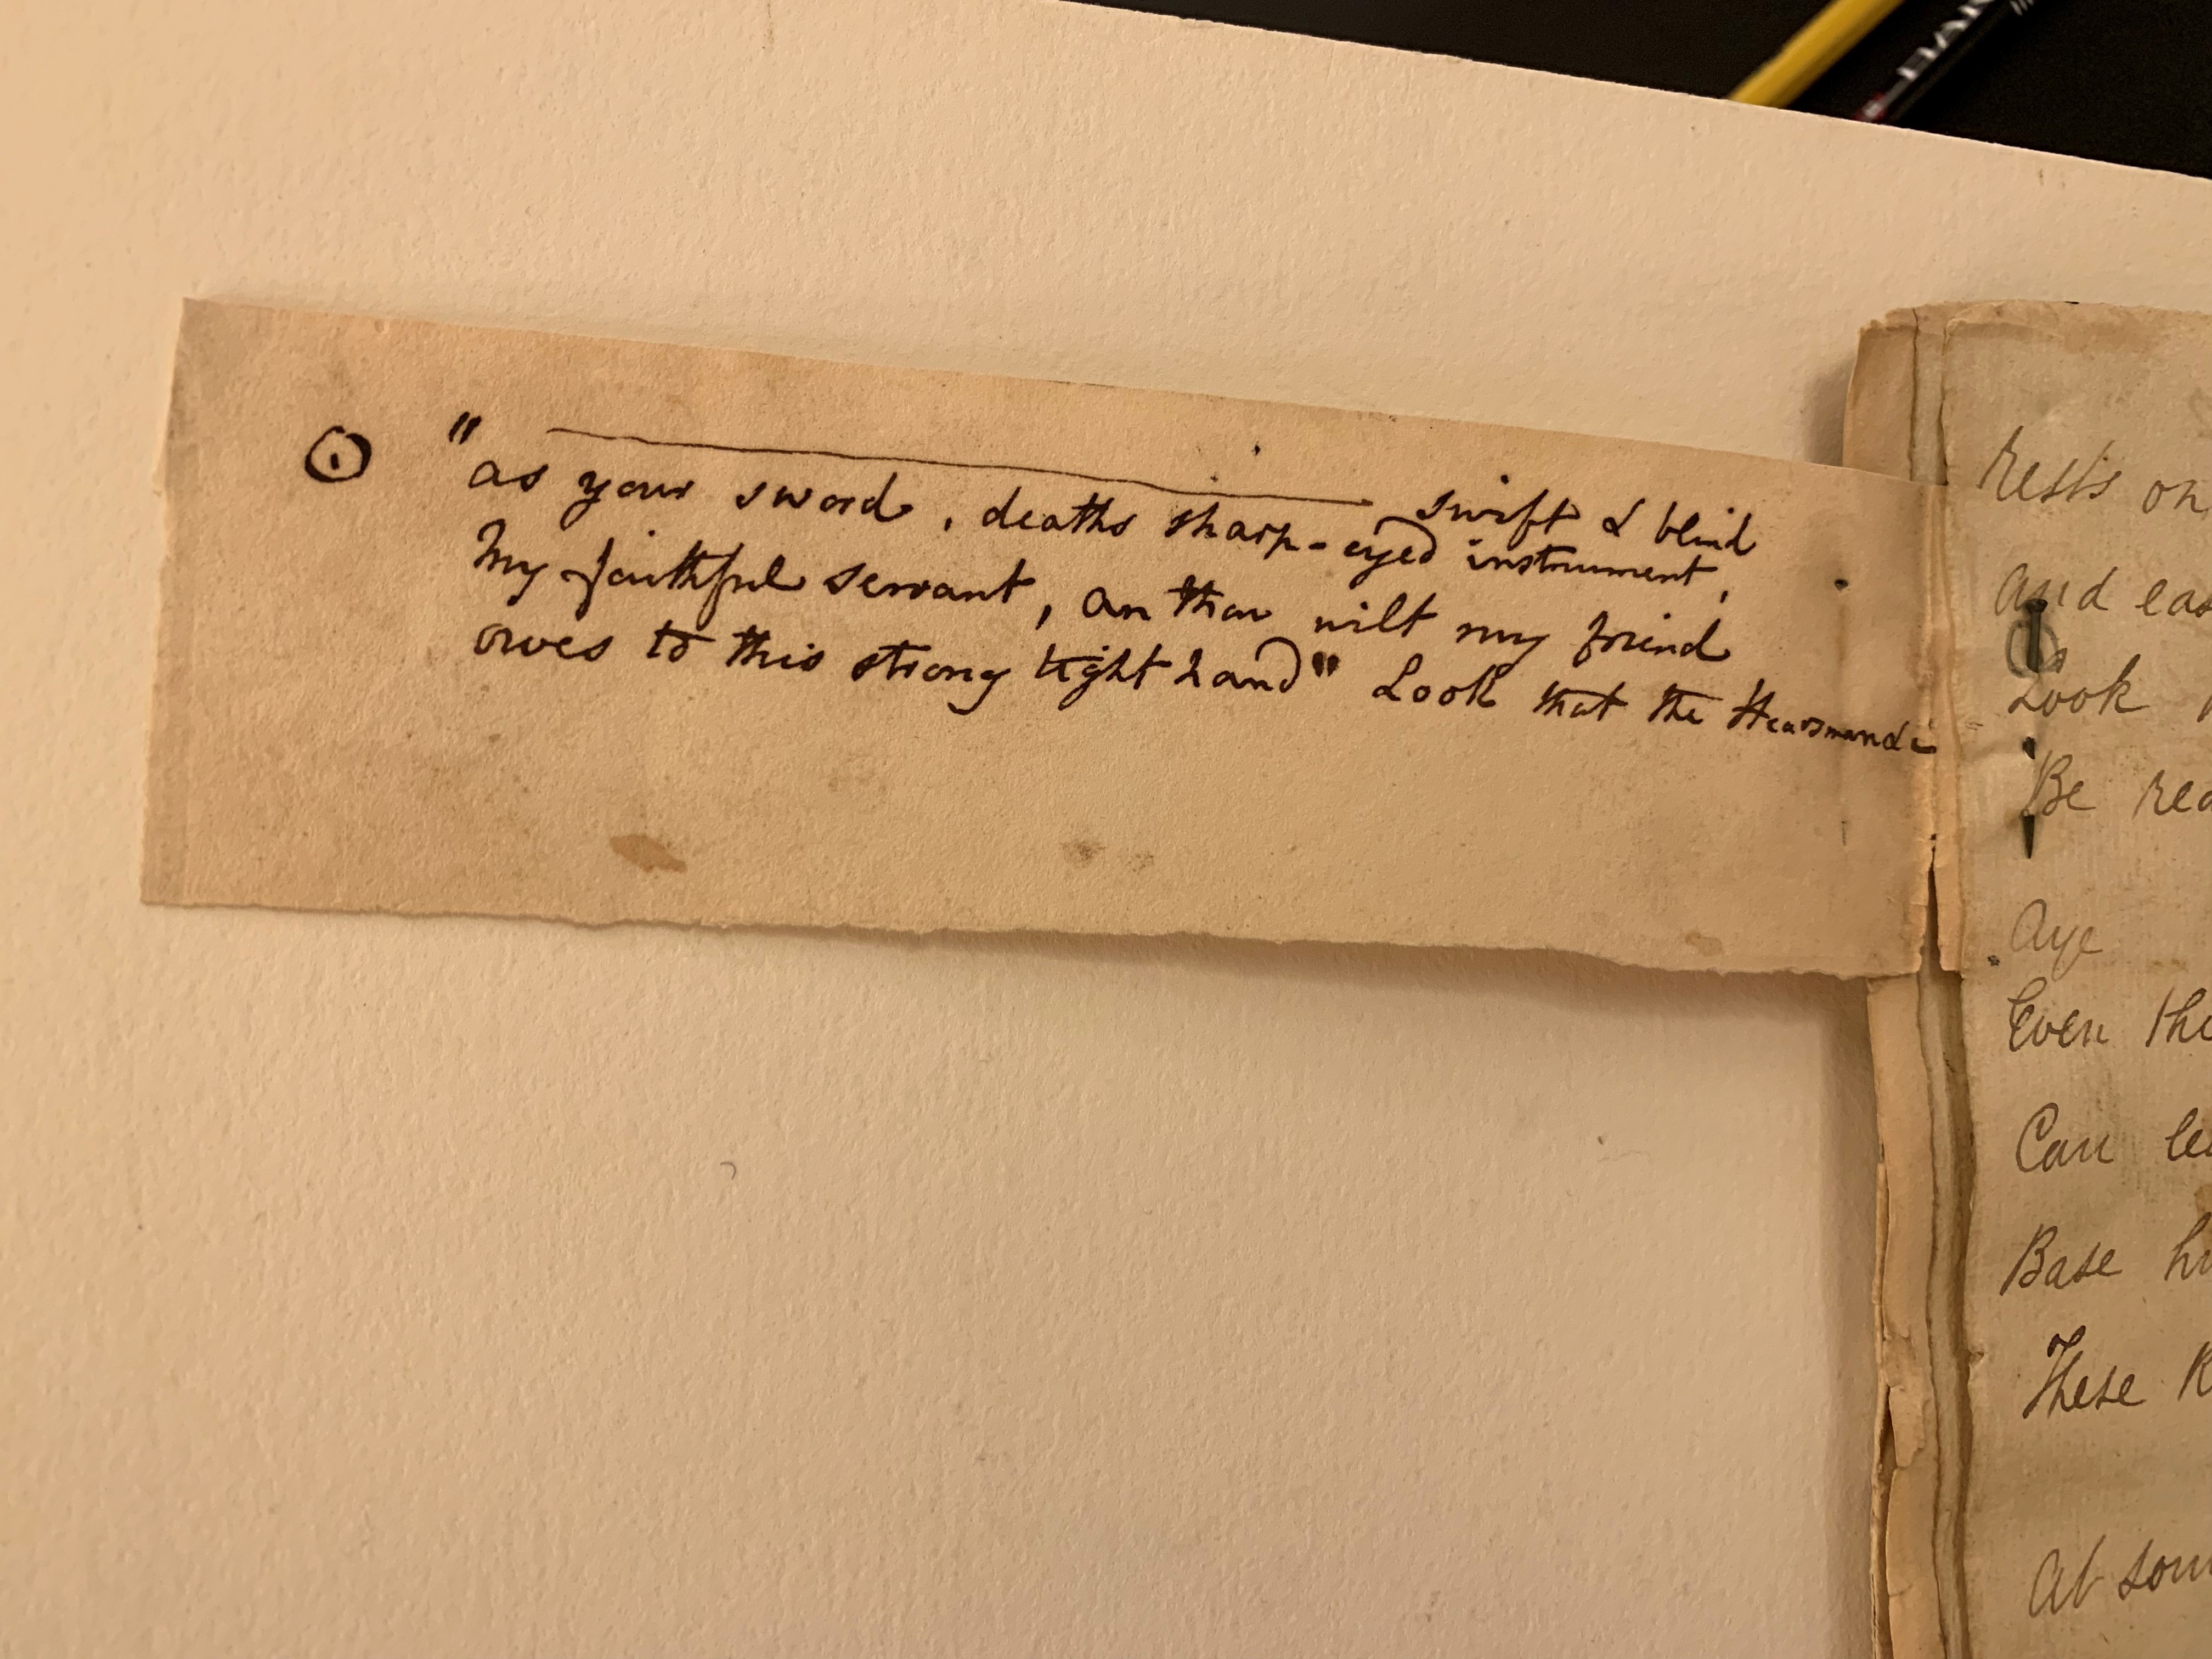 " ——— swift & blind
as your sword, deaths sharp-eyed instrument,
My faithful servant, an thou wilt my friend
owes to this strong tight hand" Look that the
rests on
and eas
Look
Be rea
Aye
Even the
Can le
Base h
These R
At som